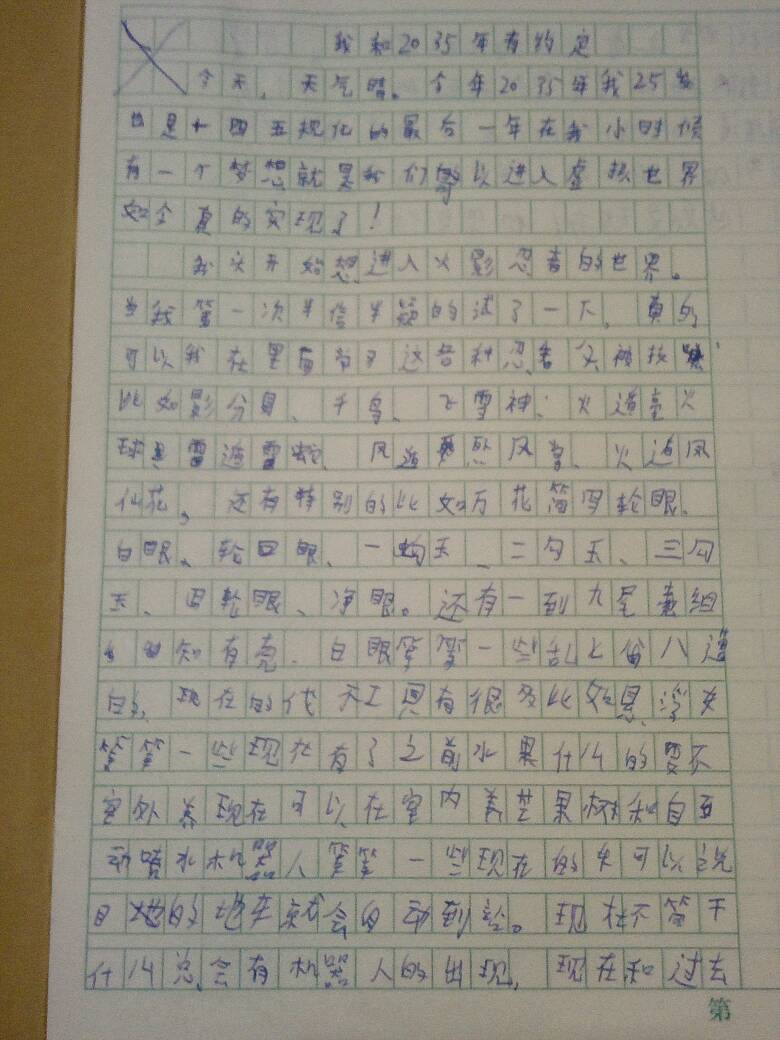 我和2035年有约定
今天,天气晴。今年2035年我25岁
也是十四五规化的最后一年在我小时候
有一个梦想就是我们可以进入虚拟世界
如今真的实现了!
我次开始想进入火影忍者的世界。
当我第一次半信半疑的试了一下,真的
可以我在里面学习这各种忍者
比如影分身、千鸟、飞雷神、火遁豪火
球 雷遁雷 、风遁 风掌、火遁凤
仙花,还有特别的比如万花筒写轮眼、
白眼、轮回眼、一勾玉、二勾玉、三勾
玉、四轮眼、净眼。还有一到九尾 组
知有亮、白眼等等一些乱七八遭
的,现在的代 工具有很多比如
等等一些现在有了之前水果什么的要不
室外养现在可以在室内养 果树和自
动 水机器人等等一些现在的车可以说
目地的地车就会自动到 。现在不管干
什么总会有机器人的出现,现在和过去
第